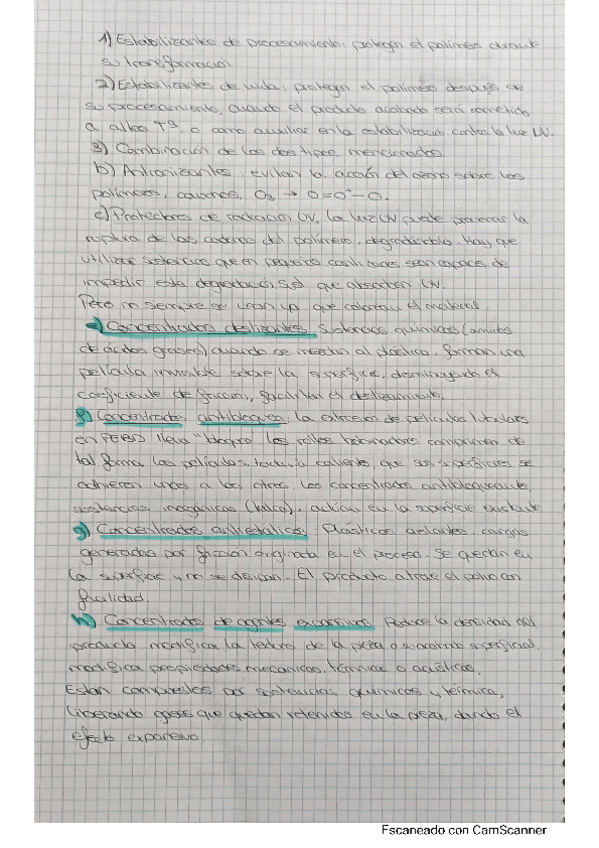 1) Estabilizantes de procesamiento: protegen el polímero durante
su transformación
2) Estabilizantes de vida: protegen el polímero después de
su procesamiento, cuando el producto acabado será sometido
a altas Tª, o como auxiliar en la estabilización contra la luz UV.
3) Combinación de los dos tipos mencionados.
b) Antiozonizantes: evitan la acción del ozono sobre los
polímeros, cauchos. O3 → O=O+-O.
c) Protectores de radiación UV. La luz UV puede provocar la
ruptura de las cadenas del polímero, degradándolo. Hay que
utilizar sustancias que en pequeñas cantidades sean capaces de
impedir esta degradación, que absorben UV.
Pero no siempre se usan ya que colorean el material.
e) Concentrados deslizantes: Sistemas químicos (amidas
de ácidos grasos) cuando se mezclan al plástico, forman una
película invisible sobre la superficie, disminuyendo el
coeficiente de fricción, facilitan el deslizamiento.
f) Concentrados antibloqueo: la extrusión de películas tubulares
en PEBD lleva "bloqueo". Los rollos bobinadores comprimen de
tal forma las películas, todavía calientes, que sus superficies se
adhieren unas a las otras. Los concentrados antibloqueante,
sustancias inorgánicas (talco), actúan en la superficie
g) Concentrados antiestáticos: Plásticos aislantes, cargas
generadas por fricción originada en el proceso. Se quedan en
la superficie y no se disipan. El producto atrae el polvo con
facilidad.
h) Concentrados de agentes expansivos: Reduce la densidad del
producto, modifica la textura de la pieza o su acabado superficial,
modifica propiedades mecánicas, térmicas o acústicas.
Están compuestos por sustancias químicas y térmica,
liberando gases que quedan retenidos en la pieza, dando el
efecto expansivo.
Escaneado con CamScanner